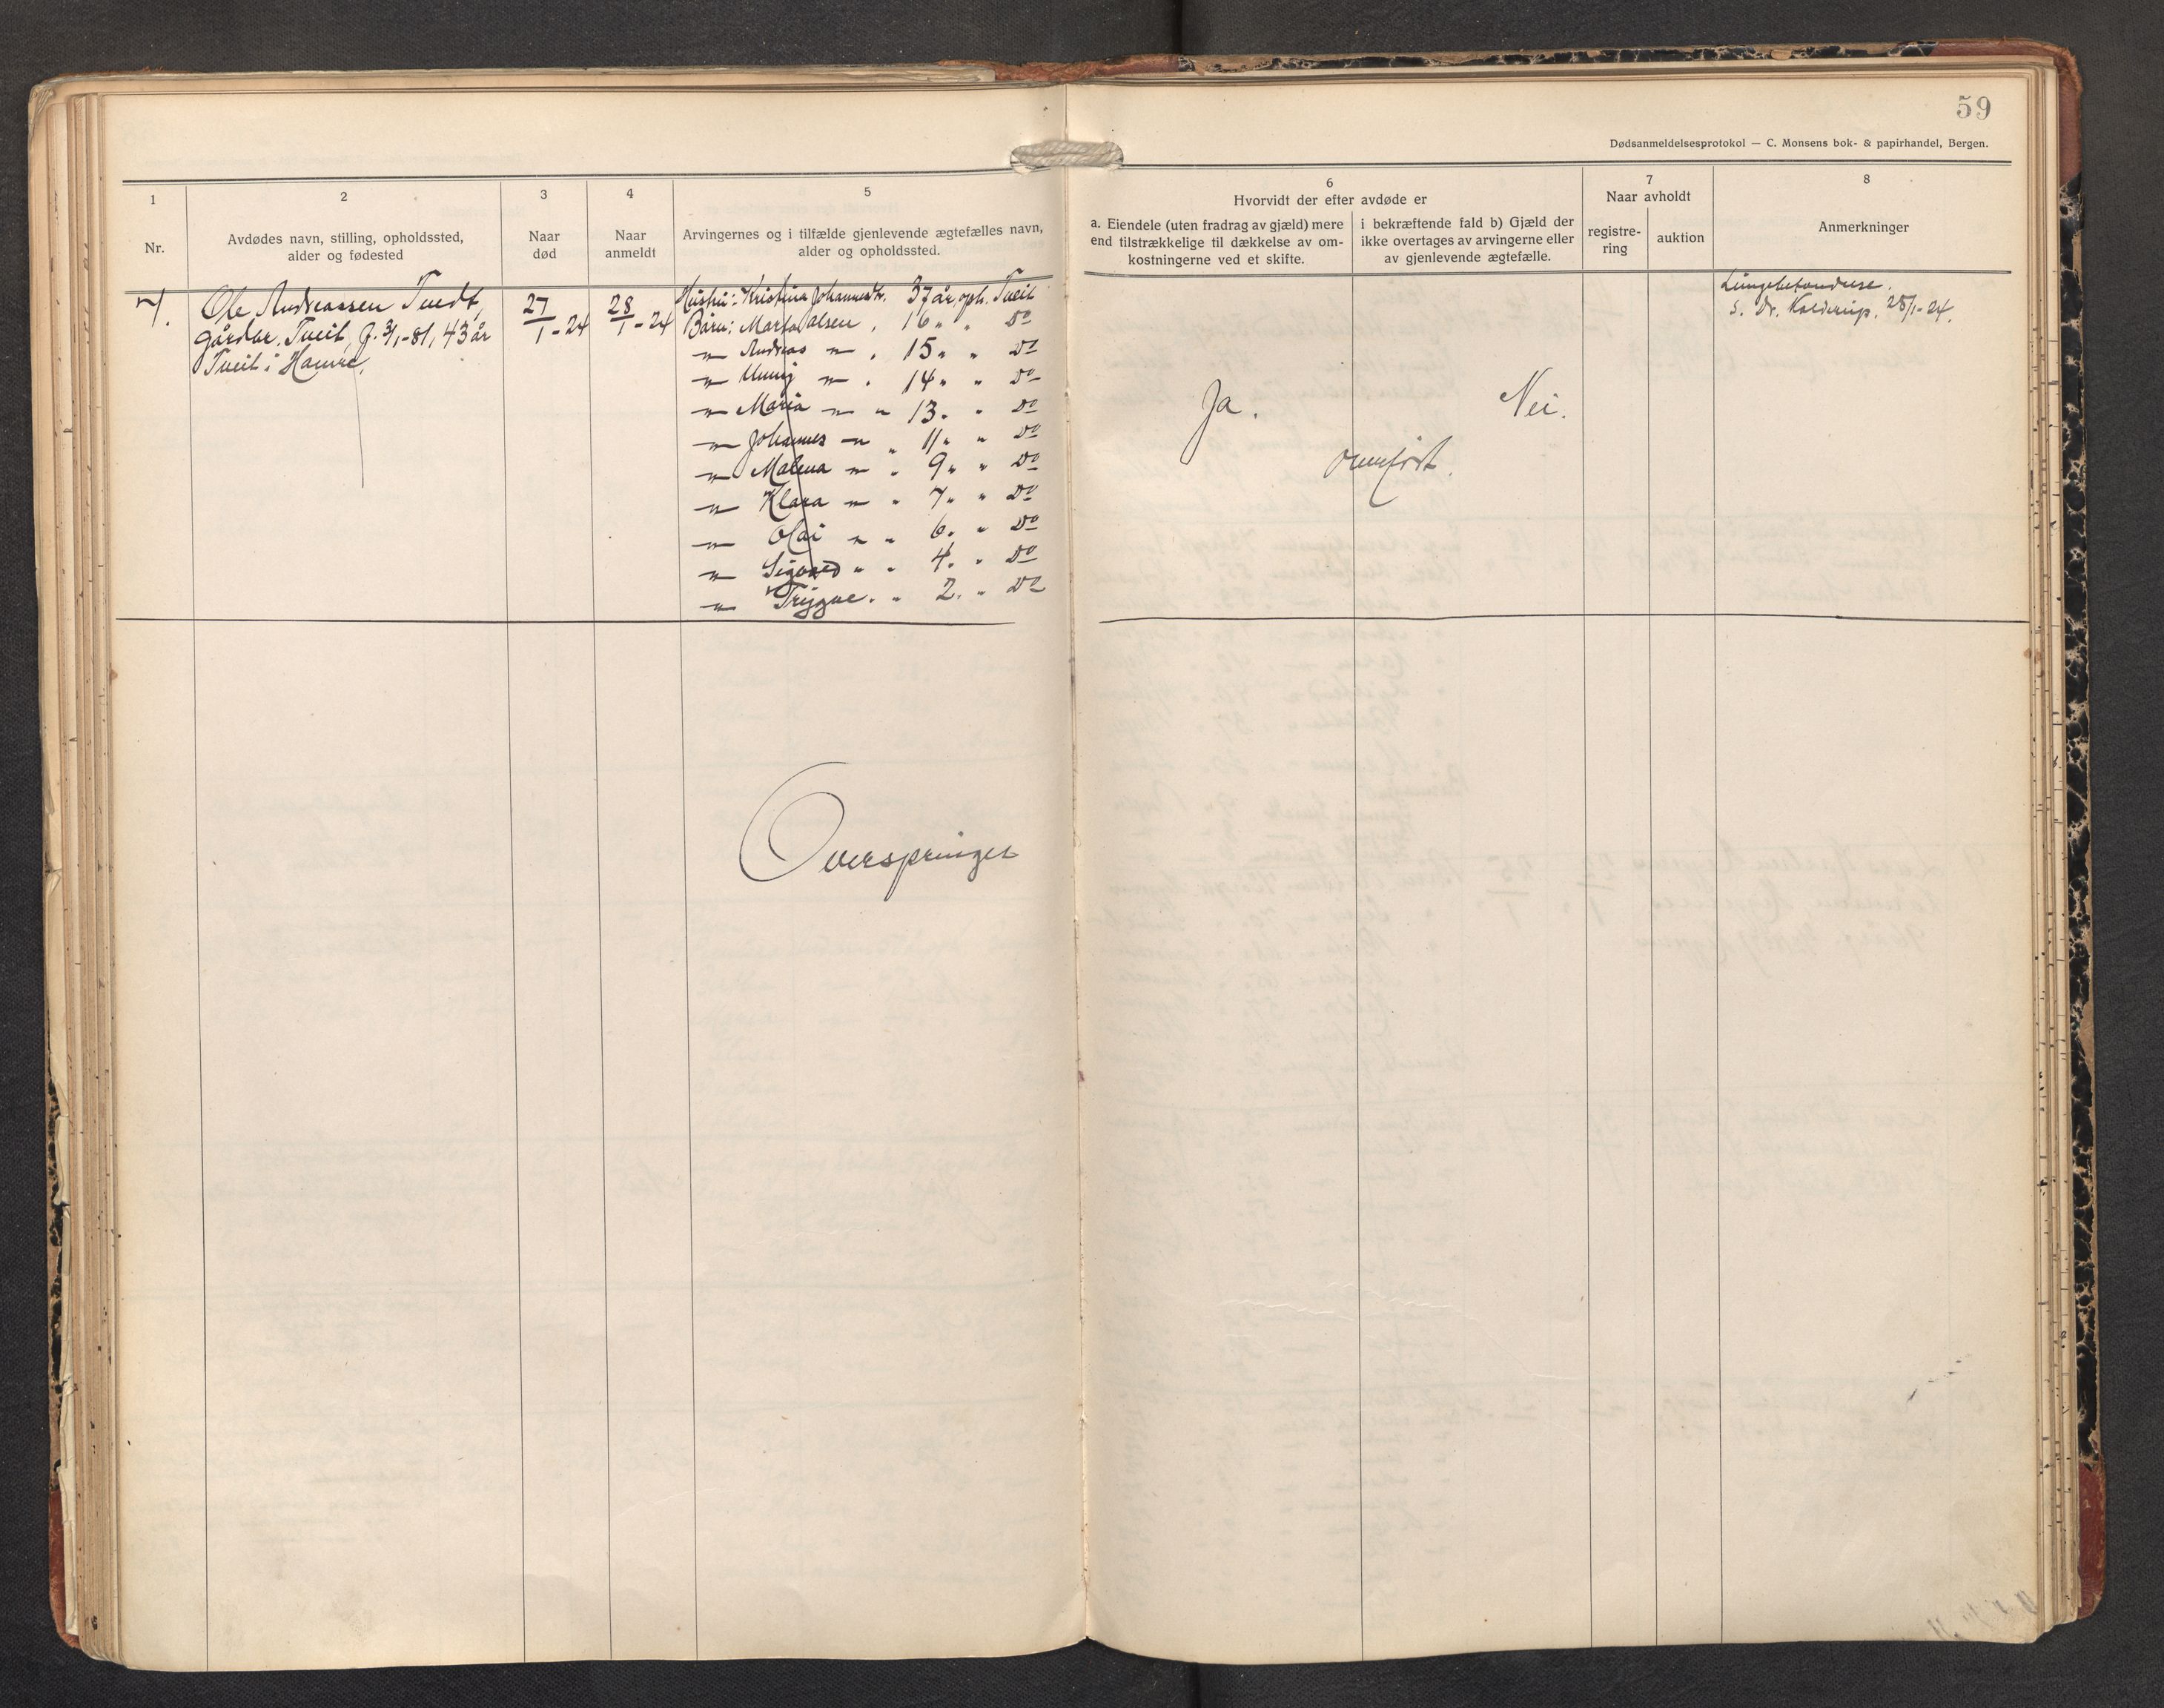 59
Dødsanmeldelsesprotokol — C. Monsens bok- & papirhandel, Bergen.
1
Nr.
2
Avdødes navn, stilling, opholdssted,
alder og fødested
3
Naar
død
4
Naar
anmeldt
5
Arvingernes og i tilfælde gjenlevende ægtefælles navn,
alder og opholdssted.
6
Hvorvidt der efter avdøde er
a. Eiendele (uten fradrag av gjæld) mere
end tilstrækkelige til dækkelse av om-
kostningerne ved et skifte.
i bekræftende fald b) Gjæld der
ikke overtages av arvingerne eller
av gjenlevende ægtefælle.
7
Naar avholdt
registre-
ring
auktion
8
Anmerkninger
7.
Ole Andreassen Tvedt,
gårdbr. Tveit, f. 3/1-81, 43 år
Tveit i Hamre.
27/1-24
28/1-24
Hustru: Kristina Johannesdtr. 37 år, oph. Tveit
Børn: Marta Olsen, 16 " " Do
—"— Andreas —"— . 15 " " Do
—"— —"— . 14 " " Do
—"— Maria —"— " 13. " Do
—"— Johannes —"— " 11 " " Do
—"— Malena —"— " 9 " " Do
—"— Klara —"— " 7 " " Do
—"— Olai —"— " 6. " Do
—"— Sigvard " " 4. " Do
—"— Trygve. " 2. " Do
Ja.
Nei.
Lungebetændelse.
s. Dr. Kolderup. 28/1-24.
Overspringes